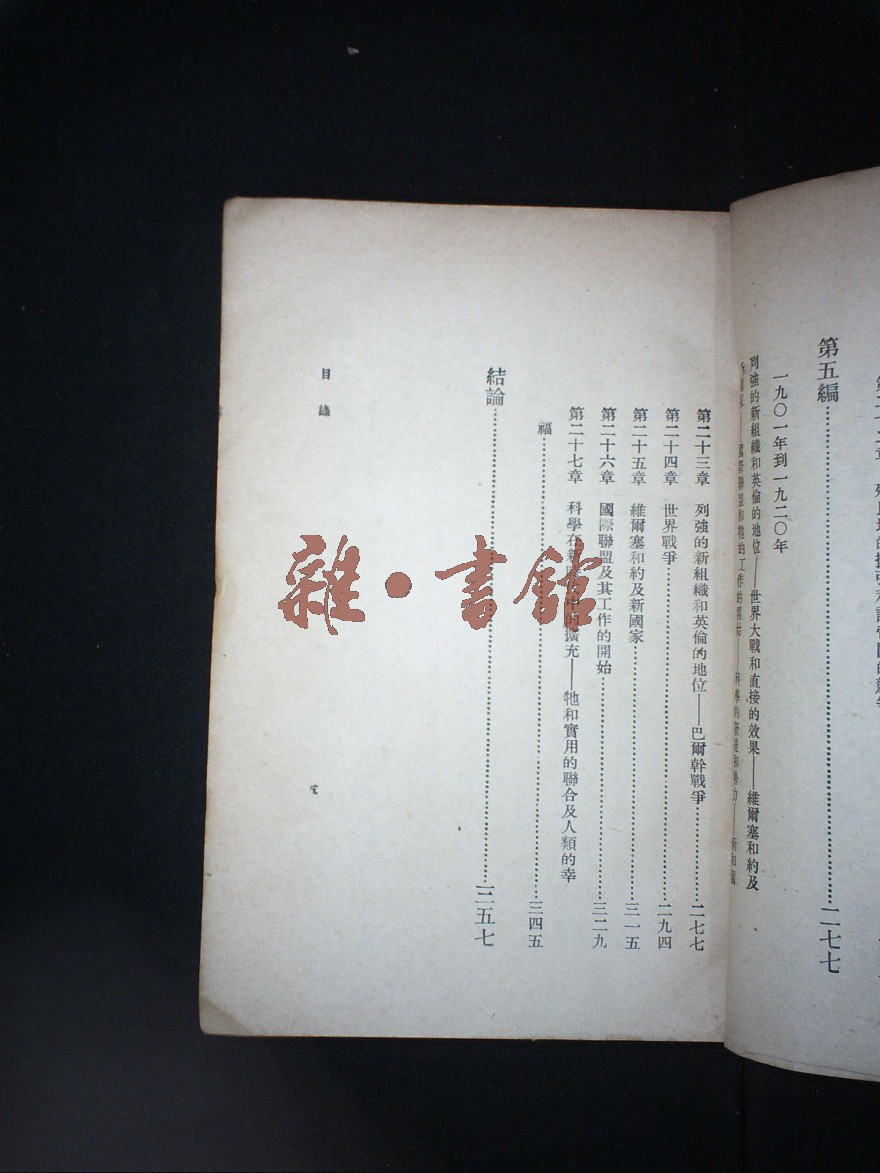 第五編……二七七
一九〇一年到一九二〇年
列強的新組織和英倫的地位——世界大戰和直接的效果——維爾塞和約及
國際聯盟和牠的工作的開始——科學的發達和勢力——新和舊
第二十三章 列強的新組織和英倫的地位——巴爾幹戰爭……二七七
第二十四章 世界戰爭……二九四
第二十五章 維爾塞和約及新國家……三一五
第二十六章 國際聯盟及其工作的開始……三二九
第二十七章 科學在新 擴充——牠和實用的聯合及人類的幸
福……三四五
結論……三五七
目錄
雜·書館